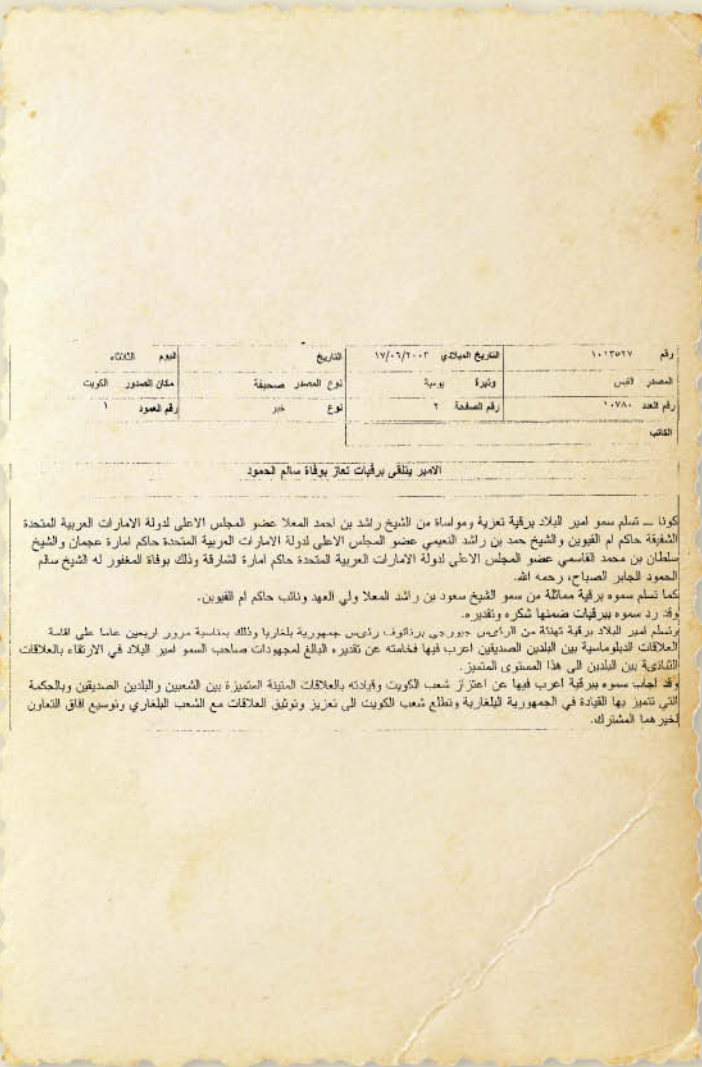 رقم ١٠١٣٥٢٧ التاريخ الميلادي ١٧/٠٦/٢٠٠٣ التاريخ اليوم الثلاثاء
المصدر القبس وتيرة يومية نوع المصدر صحيفة مكان الصدور الكويت
رقم العدد ١٠٧٨٠ رقم الصفحة ٢ نوع خبر رقم العمود ١
الكاتب
الامير يتلقى برقيات تعاز بوفاة سالم الحمود
كونا ــ تسلم سمو امير البلاد برقية تعزية ومواساة من الشيخ راشد بن احمد المعلا عضو المجلس الاعلى لدولة الامارات العربية المتحدة
الشقيقة حاكم ام القيوين والشيخ حمد بن راشد النعيمي عضو المجلس الاعلى لدولة الامارات العربية المتحدة حاكم امارة عجمان والشيخ
سلطان بن محمد القاسمي عضو المجلس الاعلى لدولة الامارات العربية المتحدة حاكم امارة الشارقة وذلك بوفاة المغفور له الشيخ سالم
الحمود الجابر الصباح، رحمه الله.
كما تسلم سموه برقية مماثلة من سمو الشيخ سعود بن راشد المعلا ولي العهد ونائب حاكم ام القيوين.
وقد رد سموه ببرقيات ضمنها شكره وتقديره.
وتسلم امير البلاد برقية تهنئة من الرئيس جيورجي برنانوف رئيس جمهورية بلغاريا وذلك بمناسبة مرور اربعين عاما على اقامة
العلاقات الدبلوماسية بين البلدين الصديقين اعرب فيها فخامته عن تقديره البالغ لمجهودات صاحب السمو امير البلاد في الارتقاء بالعلاقات
الثنائية بين البلدين الى هذا المستوى المتميز.
وقد اجاب سموه ببرقية اعرب فيها عن اعتزاز شعب الكويت وقيادته بالعلاقات المتينة المتميزة بين الشعبين والبلدين الصديقين وبالحكمة
التي تتميز بها القيادة في الجمهورية البلغارية وتطلع شعب الكويت الى تعزيز وتوثيق العلاقات مع الشعب البلغاري وتوسيع افاق التعاون
لخيرهما المشترك.